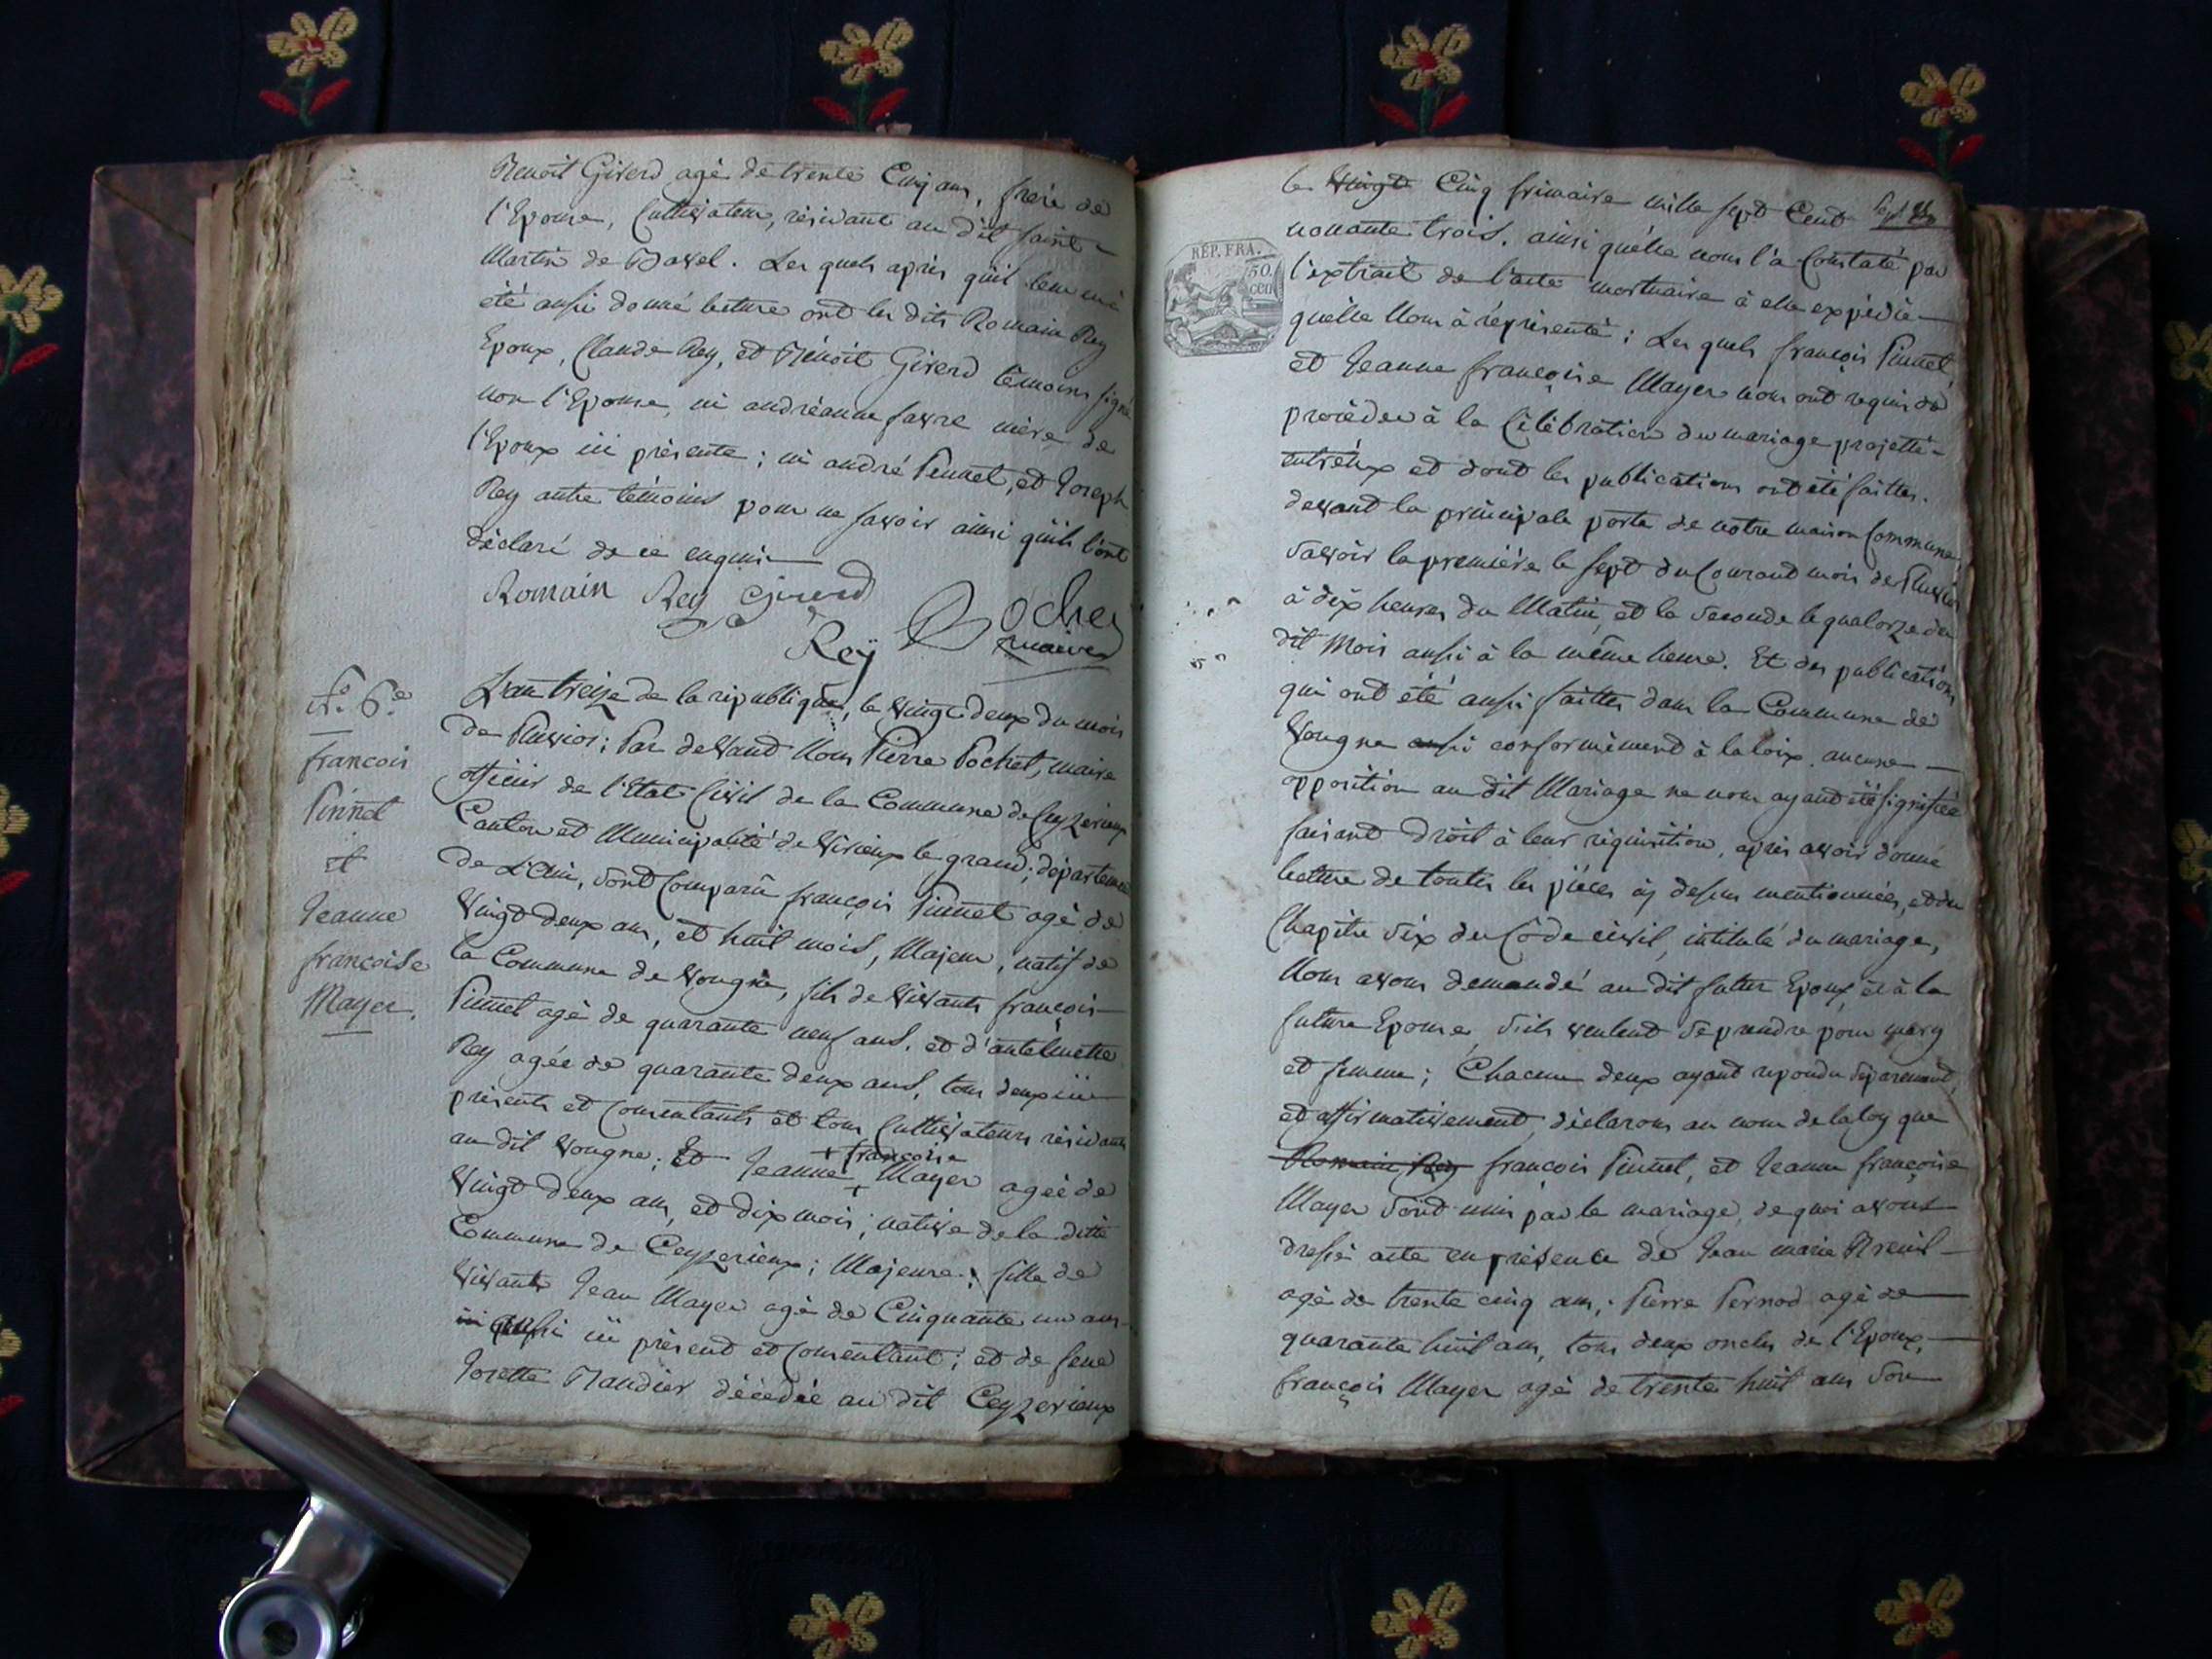 Benoit Girerd agé de trente Cinq ans, frere de
l'Epouse, Cultivateur, résidant au dit saint
Martin de Bavel. Les quels après qu'il leur eu à
été aussi donné lecture ont les dits Romain Rey
Epoux, Claude Rey, et Bénoit Girerd témoins signé
non l'Epouse, ni andréanne favre mère de
l'Epoux ici présente; ni andré Pinnet, et Joseph
Rey autre témoins pour ne savoir ainsi qu'ils l'ont
déclaré de ce enquis
Romain Rey Girerd
Rey Pochet
maire
N.° 6.e
françois
Pinnet
et
Jeanne
françoise
Mayer.
L'an treize de la république, le vingt deux du mois
de Pluvios; Par devand Nous Pierre Pochet, maire
officier de l'Etat Civil de la Commune de Ceyzerieux
Canton et Municipalité de Virieux le grand; département
de L'Ain, sont Comparû françois Pinnet agé de
vingt deux ans, et huit mois, Majeur, natif de
la Commune de Vongne, fils de vivants françois
Pinnet agé de quarante neuf ans, et d'antelmette
Rey agée de quarante deux ans, tous deux ici
présents et consentants et tous Cultivateurs résidants
au dit Vongne; Et Jeanne + françoise Mayer agée de
vingt deux ans, et dix mois; native de la ditte
Commune de Ceyzerieux; Majeure; fille de
vivants Jean Mayer agé de Cinquante un ans
ici aussi ici présent et consentant; et de feue
Josette Baudier décédée au dit Ceyzerieux
le vingt Cinq frimaire mille sept Cent
nonante trois. ainsi quélle nous l'à Constaté par
l'extrait de l'acte mortuaire à elle expédié
quélle Nous à réprésenté; Les quels françois Pinnet,
et Jeanne françoise Mayer nous ont requis de
procéder à la Célébration du mariage projetté
entréux et dont les publications ont été faittes.
devant la principale porte de notre maison Commune,
Savoir la première le sept du Courant mois de Pluvios
à dix heures du Matin, et la seconde le quatorze du
dit Mois aussi à la même heure. Et des publications
qui ont été aussi faittes dans la Commune de
Vongne aussi conformément à la loix. aucune
opposition au dit Mariage ne nous ayant été signifiée
faisant droit à leur réquisition, après avoir donné
lecture de toutes les pièces cy dessus mentionnées, et du
Chapitre six du Code civil, intitulé du mariage,
Nous avons demandé au dit futur Epoux, et à la
future Epouse, s'ils veulent se prendre pour mary
et femme; Chacun deux ayant repondu séparement,
et affirmativement, déclarons au nom de la loy que
Romain Rey françois Pinnet, et Jeanne françoise
Mayer sont unis par le mariage, de quoi avons
dressé acte en présence de Jean marie
agé de trente cinq ans, Pierre Pernod agé de
quarante huit ans, tous deux oncles de l'Epoux,
françois Mayer agé de trente huit ans son
RÉP. FRA.
50.
cen